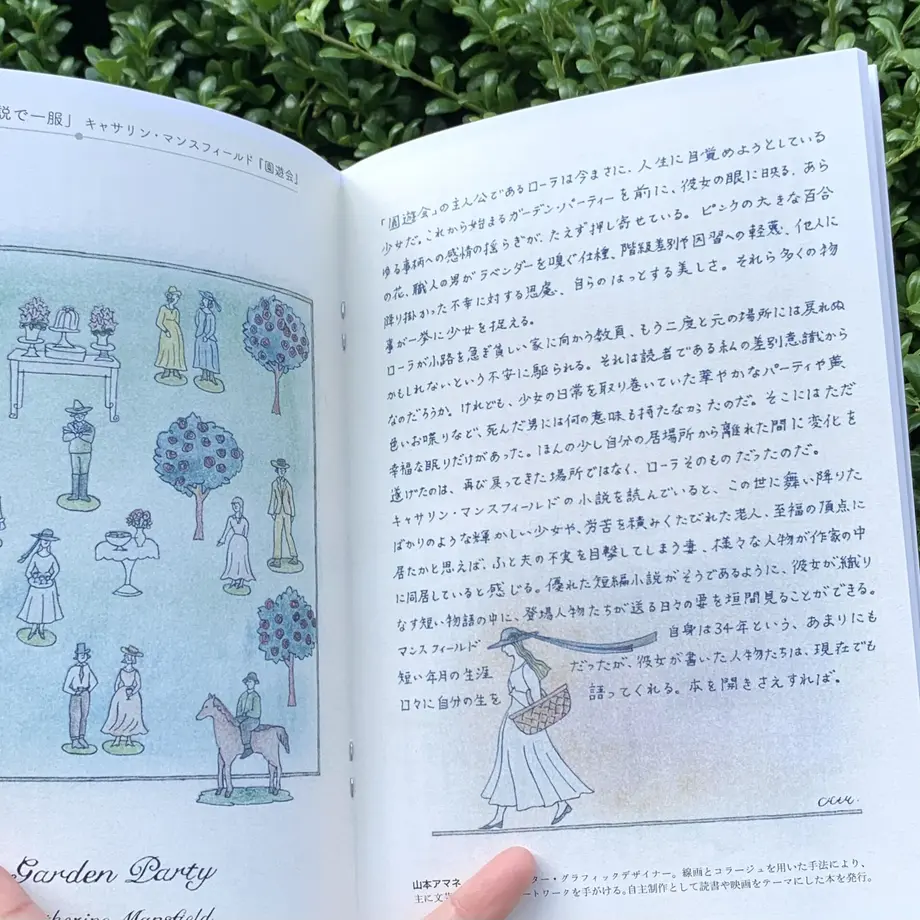 説で一服」 キャサリン・マンスフィールド「園遊会」
Garden Party
Mansfield
「園遊会」の主人公であるローラは今まさに、人生に目覚めようとしている
少女だ。これから始まるガーデン・パーティーを前に、彼女の眼に映る、あら
ゆる事柄への感情の揺らぎが、たえず押し寄せている。ピンクの大きな百合
の花、職人の男がラベンダーを嗅ぐ仕種、階級差別や因習への軽蔑、他人に
降り掛かった不幸に対する思慮、自らのはっとする美しさ。それら多くの物
事が一挙に少女を捉える。
ローラが小路を急ぎ貧しい家に向かう数頁、もう二度と元の場所には戻れぬ
かもしれないという不安に駆られる。それは読者である私の差別意識から
なのだろうか。けれども、少女の日常を取り巻いていた華やかなパーティや薫、
色いお喋りなど、死んだ男には何の意味も持たなかったのだ。そこにはただ
幸福な眠りだけがあった。ほんの少し自分の居場所から離れた間に変化を
遂げたのは、再び戻ってきた場所ではなく、ローラそのものだったのだ。
キャサリン・マンスフィールドの小説を読んでいると、この世に舞い降りた
ばかりのような輝かしい少女や、労苦を積みくたびれた老人、至福の頂点に
居たかと思えば、ふと夫の不実を目撃してしまう妻、様々な人物が作家の中
に同居していると感じる。優れた短編小説がそうであるように、彼女が織り
なす短い物語の中に、登場人物たちが送る日々の要を垣間見ることができる。
マンスフィールド 自身は34年という、あまりにも
短い年月の生涯 だったが、彼女が書いた人物たちは、現在でも
日々に自分の生を 語ってくれる。本を開きさえすれば。
山本アマネ ター・グラフィックデザイナー。線画とコラージュを用いた手法により、
主に文芸 ートワークを手がける。自主制作として読書や映画をテーマにした本を発行。